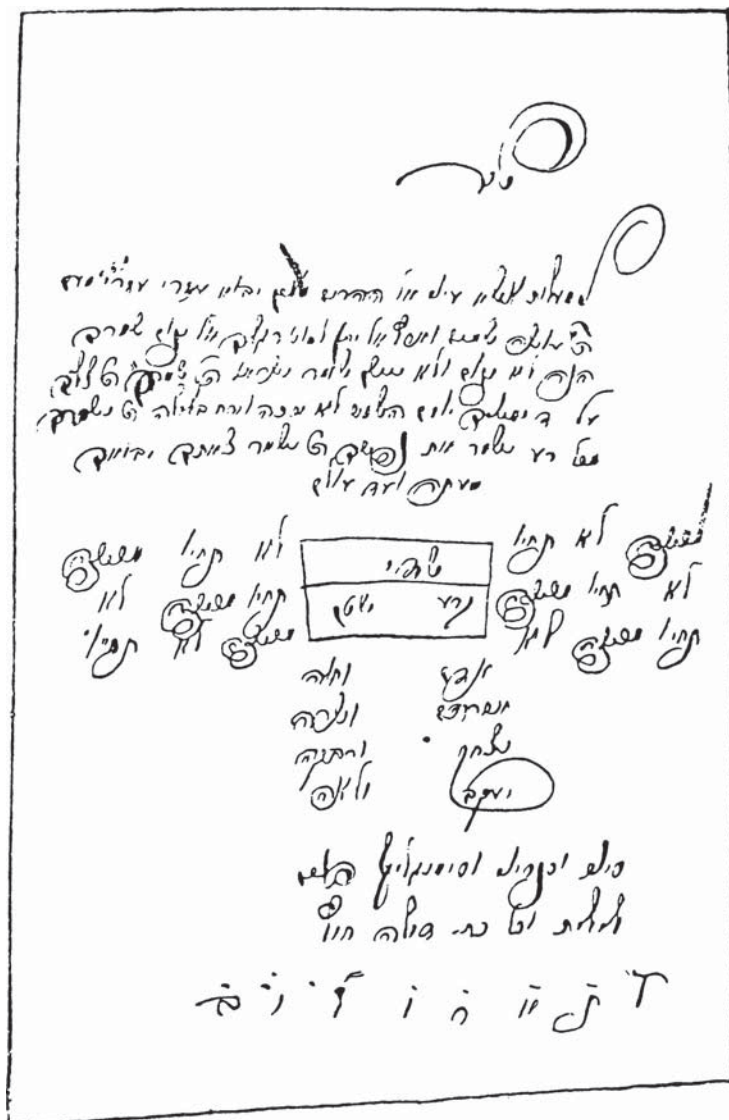 שיר
למעלות אשא עיני אל ההרים מאין יבא עזרי עזרי מעם
ה' עושה שמים וארץ אל יתן למוט רגלך אל ינום שומרך
הנה לא ינום ולא יישן שומר ישראל ה' שומרך ה' צלך
על יד ימינך יומם השמש לא יככה וירח בלילה ה' ישמרך
מכל רע ישמר את נפשך ה' ישמר צאתך ובואך
מעתה ועד עולם
מכשפה לא תחיה לא תחיה מכשפה
שדי
לא תחיה מכשפה קרע שטן תחיה מכשפה לא
תחיה מכשפה לא מכשפה לא תחיה
אדם וחוה
אברהם ושרה
יצחק ורבקה
יעקב ולאה
וסמנגלף חוץ
לילית וכל כת דילה חוץ